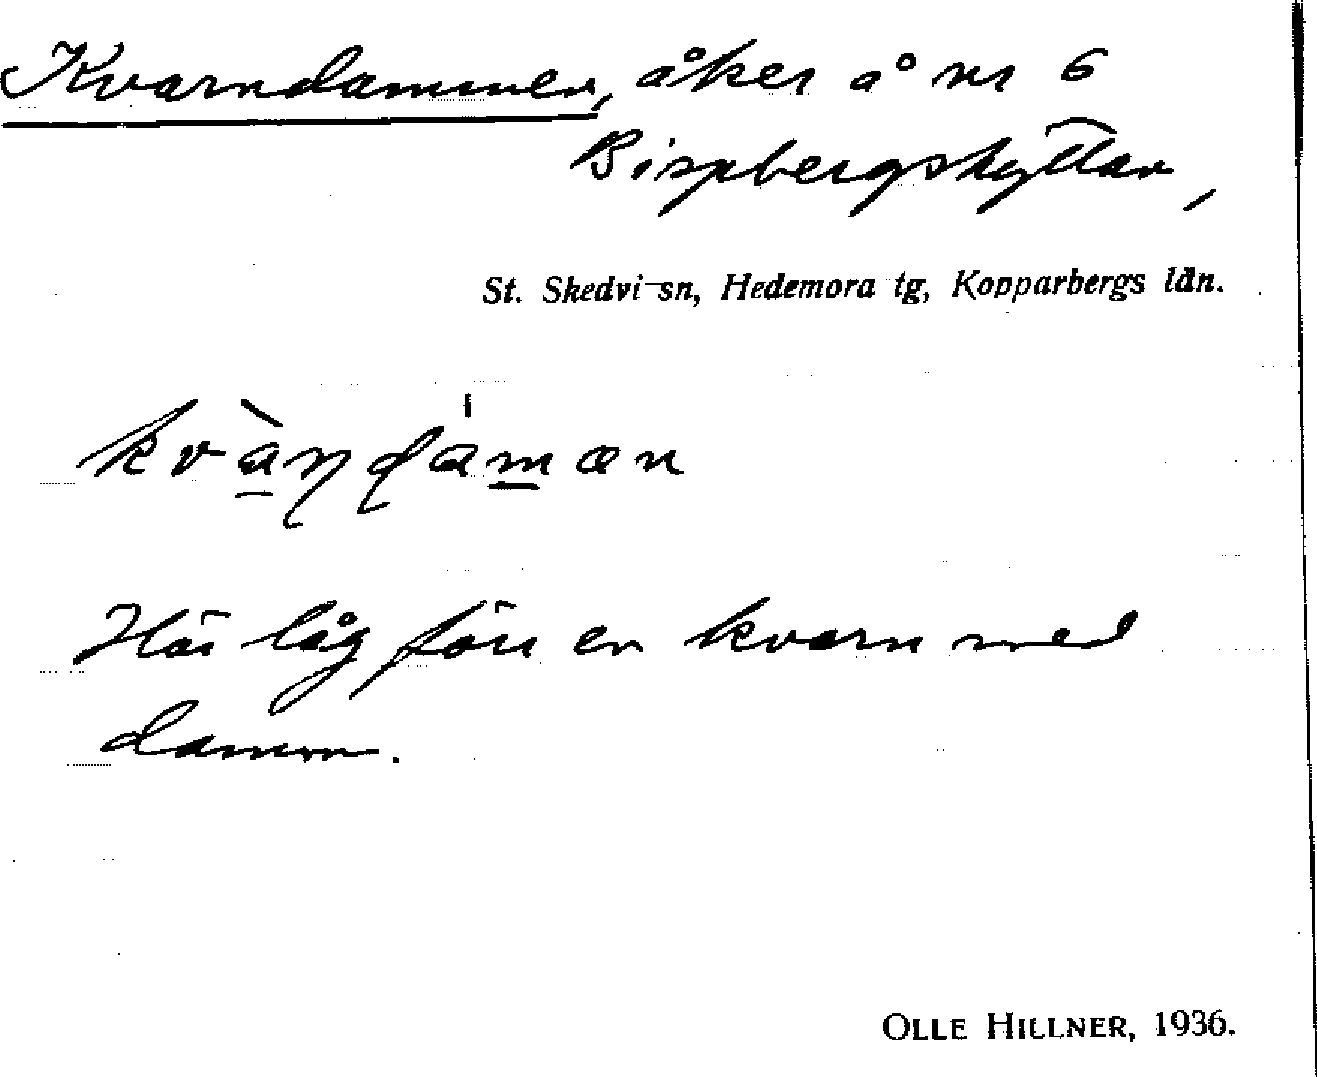 Kvarndammen, åker å nr 6
Bispbergshyttan,
St. Skedvi sn, Hedemora tg, Kopparbergs län.
kvàṇḍámæn
Här låg förr en kvarn med
damm.
OLLE HILLNER, 1936.